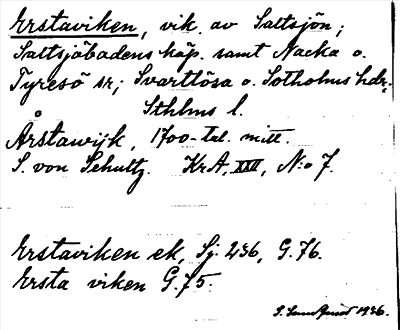 Erstaviken, vik av Saltsjön;
Saltsjöbadens köp. samt Nacka o.
Tyresö sr; Svartlösa o. Sotholms hdr,
Sthlms l.
Årstawijk, 1700-tal. mitt.
S. von Schultz. KrA, XXII, N:o 7.
Erstaviken ek, Sj. 236, G. 76.
Ersta viken G. 75.
S. Lundqvist 1936.